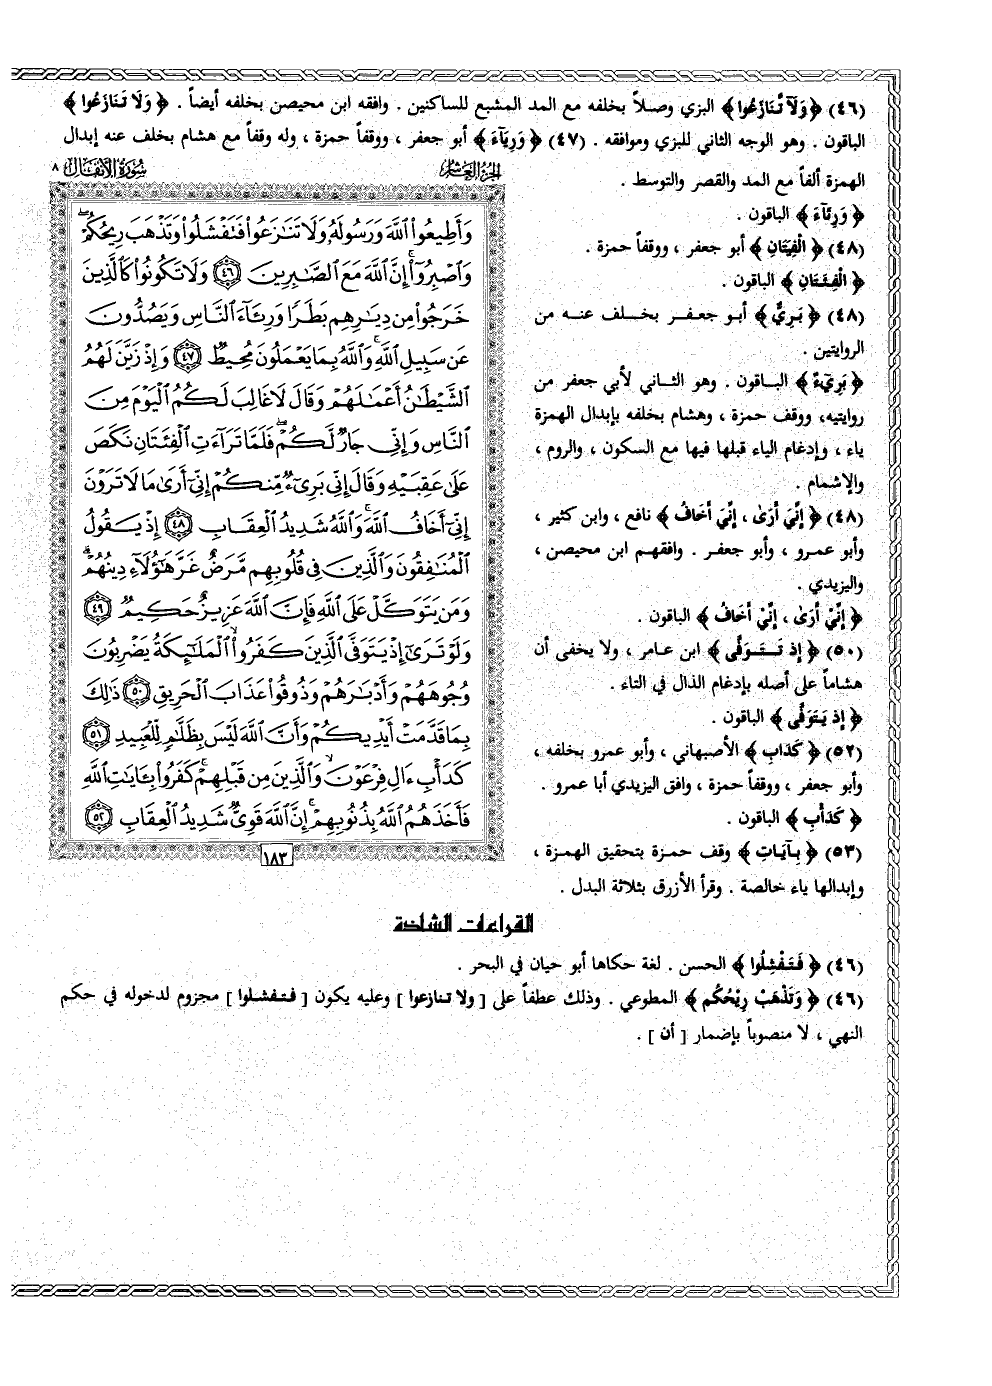 (٤٦) ﴿ وَلَآ تَّنَازَعُوا ﴾ البزي وصلاً بخلفه مع المد المشبع للساكنين . وافقه ابن محيصن بخلفه أيضاً . ﴿ وَلَا تَنَازَعُوا ﴾
الباقون . وهو الوجه الثاني للبزي وموافقه . (٤٧) ﴿ وَرِيَآءَ ﴾ أبو جعفر ، ووقفاً حمزة ، وله وقفاً مع هشام بخلف عنه إبدال
الهمزة ألفاً مع المد والقصر والتوسط .
﴿ وَرِئَآءَ ﴾ الباقون .
(٤٨) ﴿ الْفِيَتَانِ ﴾ أبو جعفر ، ووقفاً حمزة .
﴿ الْفِئَتَانِ ﴾ الباقون .
(٤٨) ﴿ بَرِيٌّ ﴾ أبو جعفر بخلف عنه من
الروايتين .
﴿ بَرِيٓءٌ ﴾ الباقون . وهو الثاني لأبي جعفر من
روايتيه، ووقف حمزة ، وهشام بخلفه بإبدال الهمزة
ياء ، وإدغام الياء قبلها فيها مع السكون ، والروم ،
والإشمام .
(٤٨) ﴿ إِنِّيَ أَرَىٰ ، إِنِّيَ أَخَافُ ﴾ نافع ، وابن كثير ،
وأبو عمرو ، وأبو جعفر . وافقهم ابن محيصن ،
واليزيدي .
﴿ إِنِّيْ أَرَىٰ ، إِنِّيْ أَخَافُ ﴾ الباقون .
(٥٠) ﴿ إِذ تَتَوَفَّى ﴾ ابن عامر ، ولا يخفى أن
هشاماً على أصله بإدغام الذال في التاء .
﴿ إِذ يَتَوَفَّى ﴾ الباقون .
(٥٢) ﴿ كَدَابِ ﴾ الأصبهاني ، وأبو عمرو بخلفه ،
وأبو جعفر ، ووقفاً حمزة ، وافق اليزيدي أبا عمرو .
﴿ كَدَأْبِ ﴾ الباقون .
(٥٣) ﴿ بِآيَاتِ ﴾ وقف حمزة بتحقيق الهمزة ،
وإبدالها ياء خالصة . وقرأ الأزرق بثلاثة البدل .
الجزء العاشر
سورة الأنفال ٨
وَأَطِيعُوا۟ ٱللَّهَ وَرَسُولَهُۥ وَلَا تَنَٰزَعُوا۟ فَتَفْشَلُوا۟ وَتَذْهَبَ رِيحُكُمْ ۖ
وَٱصْبِرُوٓا۟ ۚ إِنَّ ٱللَّهَ مَعَ ٱلصَّٰبِرِينَ ٤٦ وَلَا تَكُونُوا۟ كَٱلَّذِينَ
خَرَجُوا۟ مِن دِيَٰرِهِم بَطَرًا وَرِئَآءَ ٱلنَّاسِ وَيَصُدُّونَ
عَن سَبِيلِ ٱللَّهِ ۚ وَٱللَّهُ بِمَا يَعْمَلُونَ مُحِيطٌ ٤٧ وَإِذْ زَيَّنَ لَهُمُ
ٱلشَّيْطَٰنُ أَعْمَٰلَهُمْ وَقَالَ لَا غَالِبَ لَكُمُ ٱلْيَوْمَ مِنَ
ٱلنَّاسِ وَإِنِّى جَارٌ لَّكُمْ ۖ فَلَمَّا تَرَآءَتِ ٱلْفِئَتَانِ نَكَصَ
عَلَىٰ عَقِبَيْهِ وَقَالَ إِنِّى بَرِىٓءٌ مِّنكُمْ إِنِّىٓ أَرَىٰ مَا لَا تَرَوْنَ
إِنِّىٓ أَخَافُ ٱللَّهَ ۚ وَٱللَّهُ شَدِيدُ ٱلْعِقَابِ ٤٨ إِذْ يَقُولُ
ٱلْمُنَٰفِقُونَ وَٱلَّذِينَ فِى قُلُوبِهِم مَّرَضٌ غَرَّ هَٰٓؤُلَآءِ دِينُهُمْ ۗ
وَمَن يَتَوَكَّلْ عَلَى ٱللَّهِ فَإِنَّ ٱللَّهَ عَزِيزٌ حَكِيمٌ ٤٩
وَلَوْ تَرَىٰٓ إِذْ يَتَوَفَّى ٱلَّذِينَ كَفَرُوا۟ ۙ ٱلْمَلَٰٓئِكَةُ يَضْرِبُونَ
وُجُوهَهُمْ وَأَدْبَٰرَهُمْ وَذُوقُوا۟ عَذَابَ ٱلْحَرِيقِ ٥٠ ذَٰلِكَ
بِمَا قَدَّمَتْ أَيْدِيكُمْ وَأَنَّ ٱللَّهَ لَيْسَ بِظَلَّٰمٍ لِّلْعَبِيدِ ٥١
كَدَأْبِ ءَالِ فِرْعَوْنَ ۙ وَٱلَّذِينَ مِن قَبْلِهِمْ ۚ كَفَرُوا۟ بِـَٔايَٰتِ ٱللَّهِ
فَأَخَذَهُمُ ٱللَّهُ بِذُنُوبِهِمْ ۗ إِنَّ ٱللَّهَ قَوِىٌّ شَدِيدُ ٱلْعِقَابِ ٥٢
١٨٣
القراءات الشاذة
(٤٦) ﴿ فَتَفْشِلُوا ﴾ الحسن . لغة حكاها أبو حيان في البحر .
(٤٦) ﴿ وَتَذْهَبْ رِيْحُكُم ﴾ المطوعي . وذلك عطفاً على [ ولا تنازعوا ] وعليه يكون [ فتفشلوا ] مجزوم لدخوله في حكم
النهي ، لا منصوباً بإضمار [ أن ] .